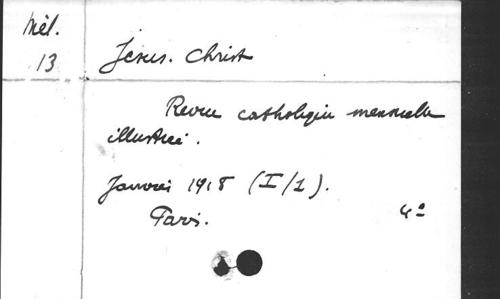 Mél.
13
Jésus. Christ
Revue catholique mensuelle
illustrée.
Janvier 1918 (I/1).
Paris.
4º